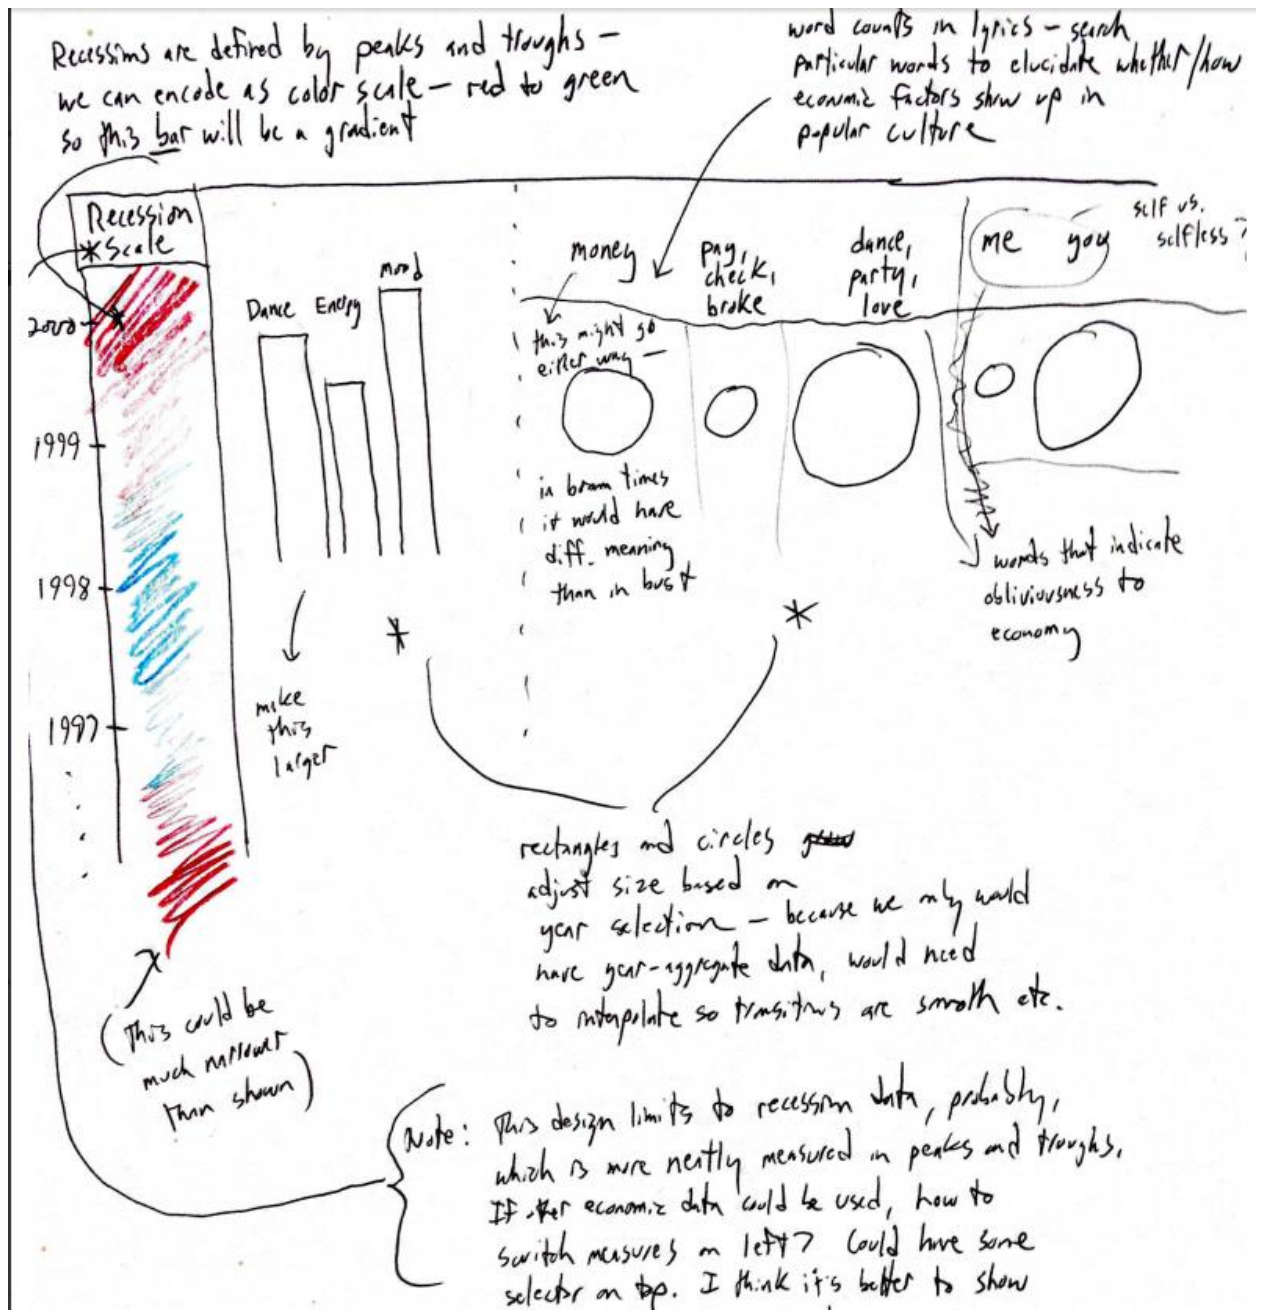 Recessions are defined by peaks and troughs –
we can encode as color scale – red to green
so this bar will be a gradient
word counts in lyrics – search
particular words to elucidate whether/how
economic factors show up in
popular culture
Recession
* Scale
2000
1999
1998
1997
Dance
Energy
Mood
make
this
larger
*
money
this might go
either way –
in boom times
it would have
diff. meaning
than in bust
pay,
check,
broke
dance,
party,
love
*
me you
self vs.
selfless ?
words that indicate
obliviousness to
economy
rectangles and circles
adjust size based on
year selection – because we only would
have year-aggregate data, would need
to interpolate so transitions are smooth etc.
(This could be
much narrower
than shown)
Note: This design limits to recession data, probably,
which is more neatly measured in peaks and troughs.
If other economic data could be used, how to
switch measures on left? Could have some
selector on top. I think it's better to show